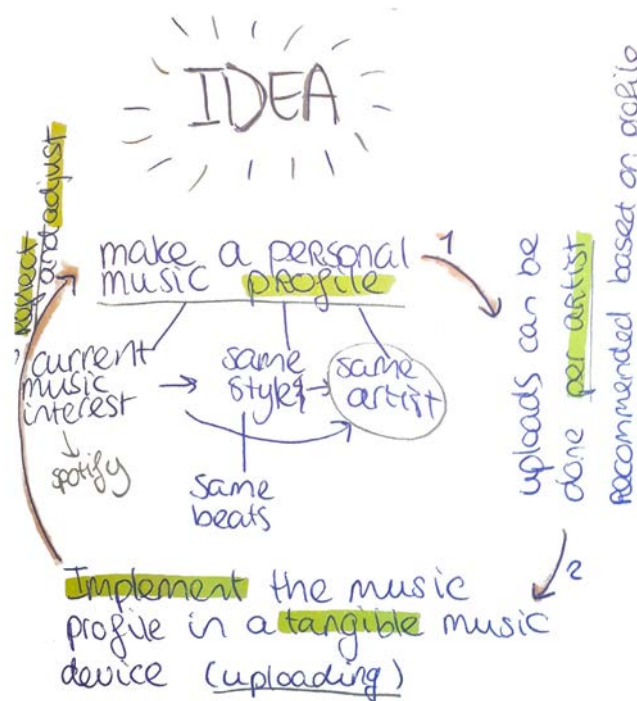 IDEA
reflect
and adjust
make a personal
music profile
1
current
music
interest
spotify
same
style
same
artist
same
beats
uploads can be
done per artist
Recommended based on profile
2
Implement the music
profile in a tangible music
device (uploading)